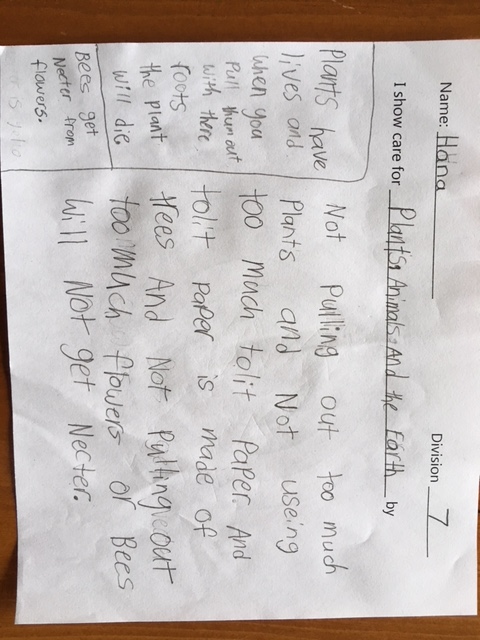 Name: Hana
Division 7
I show care for Plants, Animals, And the Earth by
Not pulling out too much
Plants and Not useing
too much tolit Paper. And
tolit paper is made of
trees And Not Pulling out
too much flowers or Bees
will Not get Necter.
Plants have
lives and
when you
Pull them out
with there
roots
the plant
will die
Bees get
Necter from
flowers.